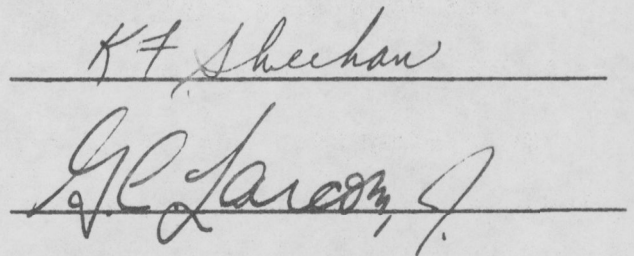 K F Sheehan
G.C. Larcom, J.